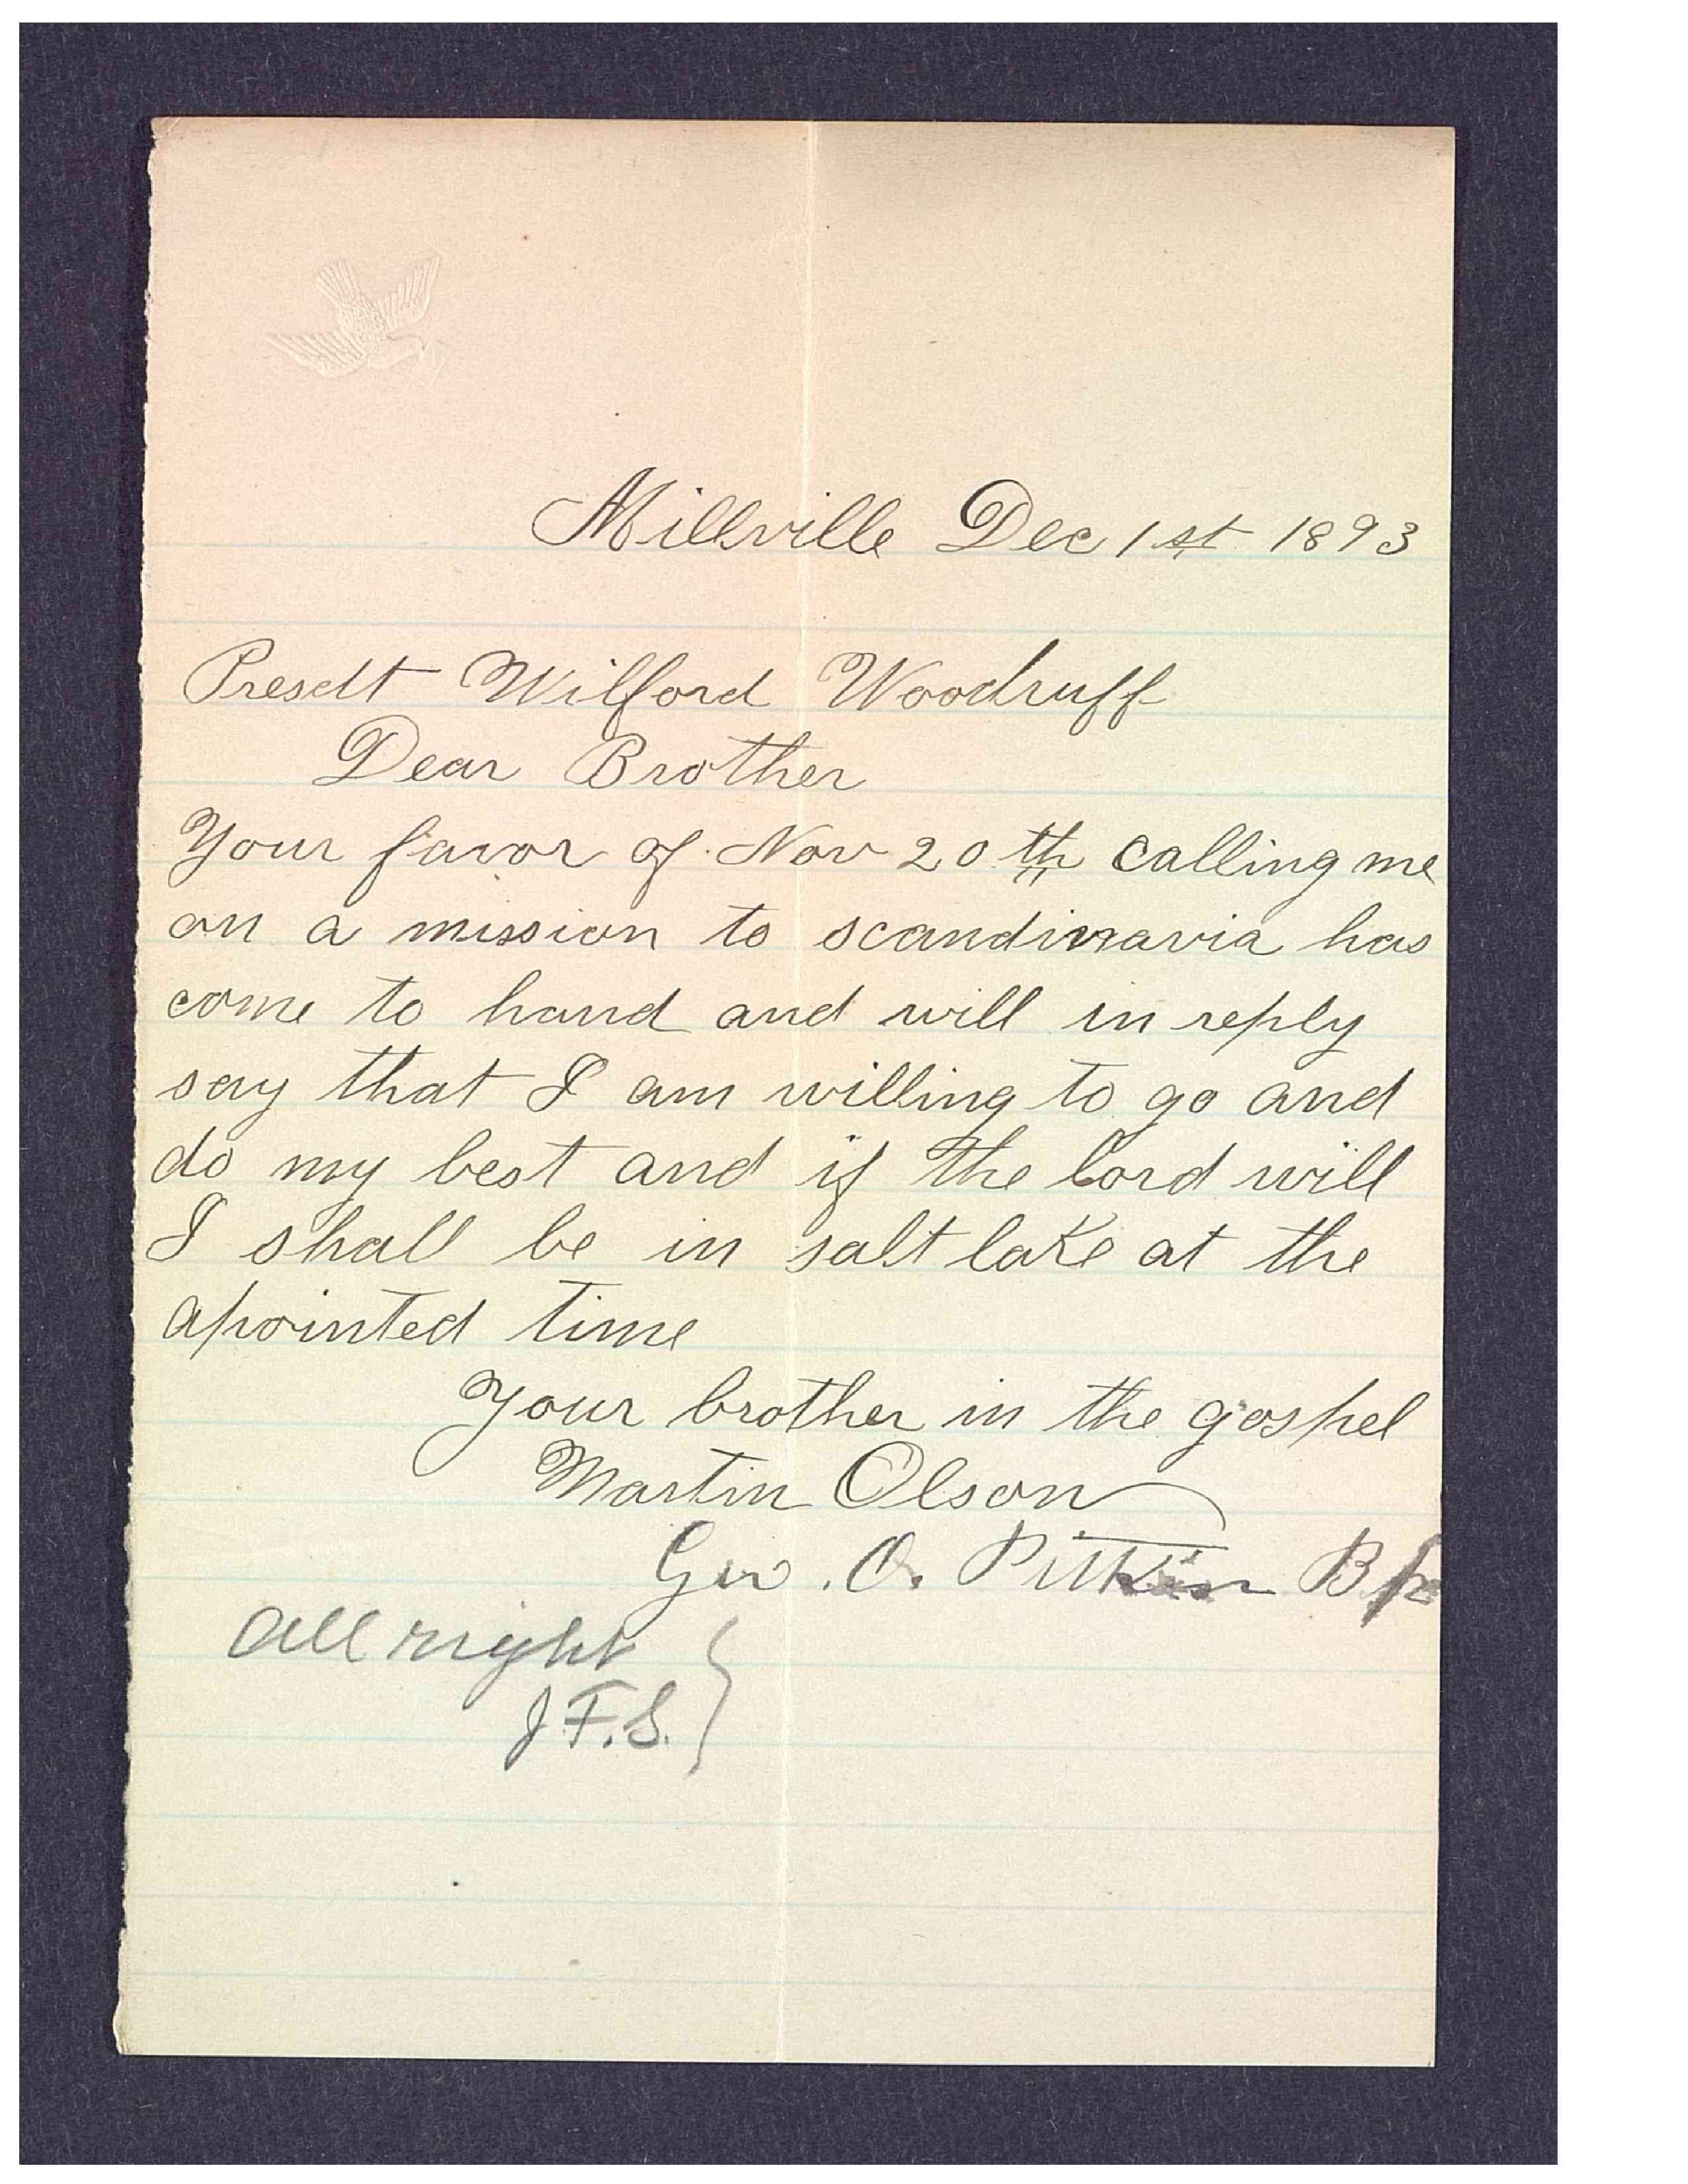 Millville Dec 1st 1893
Presdt Wilford Woodruff
Dear Brother
Your favor of Nov 20th calling me
on a mission to scandinavia has
come to hand and will in reply
say that I am willing to go and
do my best and if the Lord will
I shall be in salt lake at the
apointed time
Your brother in the gospel
Martin Olson
Geo. O. Pitkin Bp
All right
J.F.S.